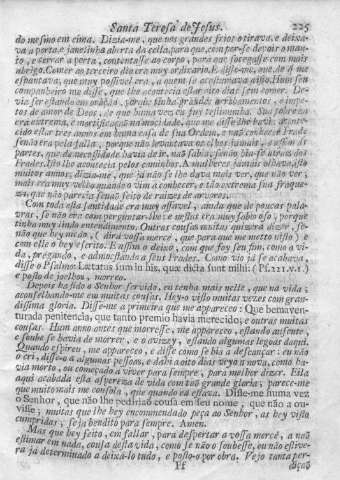 Santa Teresa de Jesus. 225
do mesmo em cima. Dizia-me, que nos grandes frios o tirava, e deixa-
va a porta, e janelinha aberta da cella, para que, com por-se depois o man-
to, e cerrar a porta, contentasse ao corpo, para que socegasse com mais
abrigo. Comer ao terceiro dia era muy ordinario. E disse-me, que de que me
espantava, que muy possivel era, a quem se acostumava a isso. Hum seu
companheiro me disse, que lhe acontecia estar oito dias sem comer. De-
via ser estando em oração, porque tinha grandes arrobamentos, e impe-
tos de amor de Deos, de que huma vez eu fuy testimunha. Sua pobreza
era extrema, e mortificação na mocidade, que me disse lhe havia aconte-
cido estar tres annos em huma casa de sua Ordem, e não conhecer Frade
senão era pela falla, porque não levantava os olhos jamais, e assim ás
partes, que de necessidade havia de ir, não sabia, senão hia-se atraz dos
Frades. Isto lhe acontecia pelos caminhos. A mulheres jámais olhava, isto
muitos annos; dizia-me, que já não se lhe dava mais ver, que não ver;
mais era muy velho quando o vim a conhecer, e tão extrema sua fraque-
za, que não parecia senão feito de raizes de arvores.
Com toda esta santidade era muy affavel, ainda que de poucas pala-
vras, se não era com perguntar-lhe: e nestas era muy sabio, porque
tinha muy lindo entendimento. Outras cousas muitas quizera dizer, se-
não que hey medo, (dirá vossa mercê, que para que me metto nisto) e
com elle o hey escrito. E assim o deixo, com que foy seu fim, como a vi-
da, prégando, e admoestando a seus Frades. Como vio já se acabava,
disse o Psalmo: Lætatus sum in his, quæ dicta sunt mihi: (Ps.121.v.1.)
e posto de joelhos, morreu.
Depois ha sido o Senhor servido, eu tenha mais nelle, que na vida;
aconselhando-me em muitas cousas. Hey-o visto muitas vezes com gran-
dissima gloria. Disse-me a primeira que me appareceo: Que bemaven-
turada penitencia, que tanto premio havia merecido; e outras muitas
cousas. Hum anno antes que morresse, me appareceo, estando ausente,
e soube se havia de morrer, e o avizey, estando algumas legoas daqui.
Quando espirou, me appareceo, e disse como se hia a descançar: eu não
o cri, disse-o a algumas pessoas, e dahi a oito dias veyo a nova, como ha-
via morto, ou começado a viver para sempre, para melhor dizer. Ella
aqui acabada esta aspereza de vida com tão grande gloria; parece-me
que muito mais me consola, que quando cá estava. Disse-me huma vez
o Senhor, que não lhe pedirião cousa em seu nome, que não a ou-
visse; muitas que lhe hey encommendado peça ao Senhor, as hey visto
cumpridas; seja bendito para sempre. Amen.
Mas que hey feito, em fallar, para despertar a vossa mercê, a não
estimar em nada, cousa desta vida, como se não o soubesse, ou não estive-
ra já determinado a deixa-lo tudo, e posto-o por obra. Vejo tanta per-
Ff diçaõ